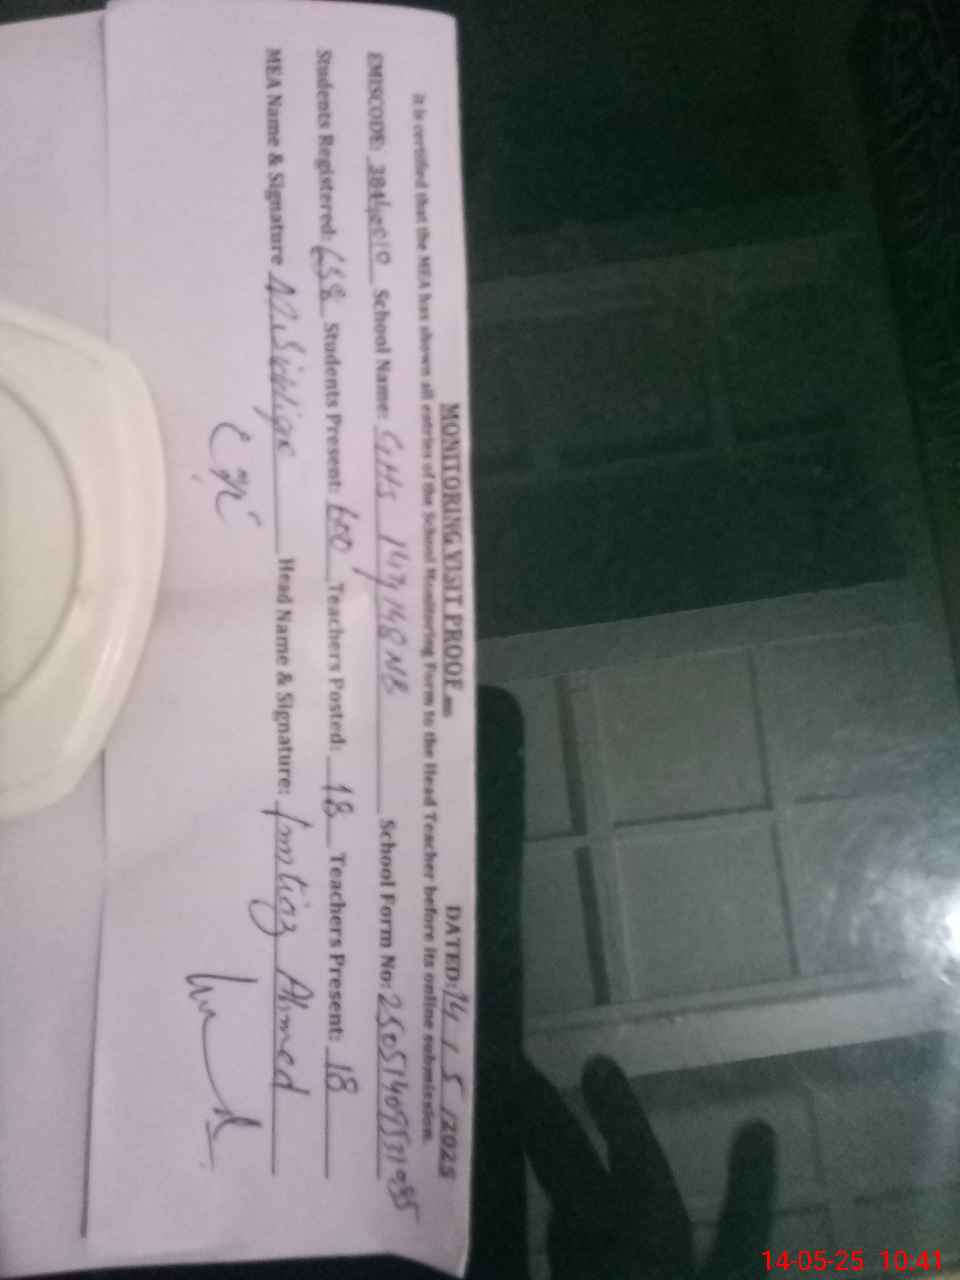 MONITORING VISIT PROOF DATED: 14 / 5 /2025
It is certified that the MEA has shown all entries of the School Monitoring Form to the Head Teacher before its online submission.
EMISCODE: School Name: GHS 147/148 NB School Form No:
Students Registered: 658 Students Present: 600 Teachers Posted: 18 Teachers Present: 18
MEA Name & Signature Head Name & Signature: Imtiaz Ahmed
14-05-25 10:41